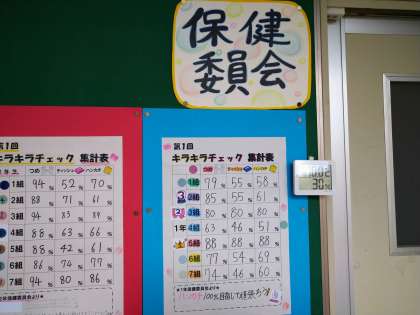 保健
委員会
第1回
キラキラチェック 集計表
つめ ティッシュ ハンカチ
1組 94% 52% 70%
2組 88% 71% 61%
3組 94% 83%
4組 88% 63% 66%
5組 88% 42% 61%
6組 86% 74% 77%
7組 94% 80% 86%
第1回
キラキラチェック 集計表
つめ ティッシュ ハンカチ
1組 79% 55% 58%
2組 85% 55% 61%
3組 80% 80% 80%
1年 4組 63% 46% 51%
5組 88% 88% 88%
6組 77% 54% 69%
7組 74% 46% 60%
100%目指して頑張ろう
30%